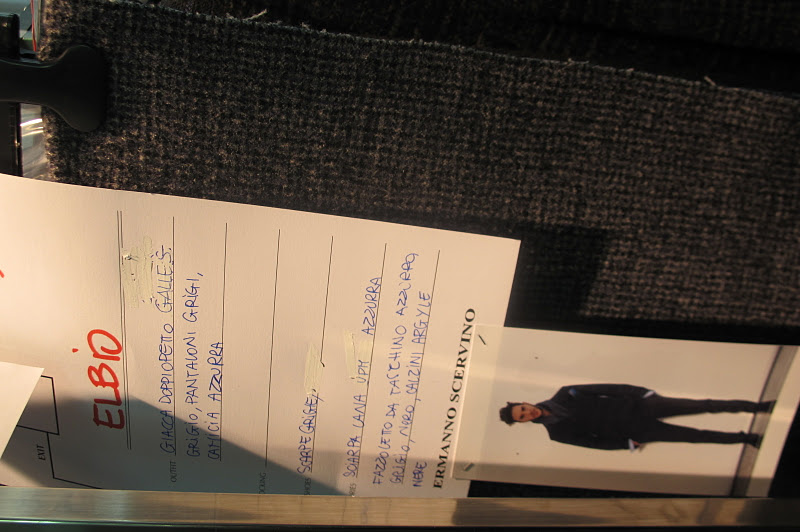 ELBIO
OUTFIT GIACCA DOPPIOPETTO GALLES
GRIGIO, PANTALONI GRIGI,
CAMICIA AZZURRA
SCARPE GRIGE,
SCARPA LANA UPM AZZURRA
FAZZOLETTO DA TASCHINO AZZURRO,
GRIGIO, NERO, CALZINI ARGYLE
NERE
ERMANNO SCERVINO
EXIT